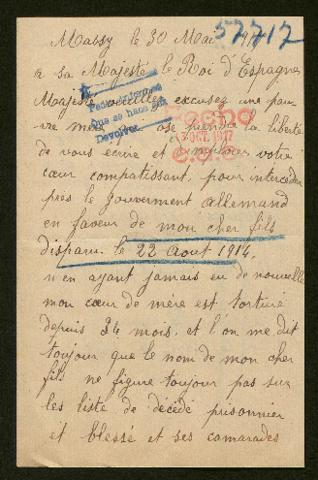 le 30 Mai 191
57717
a sa Majesté le Roi d'Espagne
Majesté veuillez excusez une pau
vre mère qui ose prendre la liberté
de vous ecrire et d'implorer votre
cœur compatissant, pour interceder
près le gouverment allemand
en faveur de mon cher fils
disparu le 22 Aout 1914.
n'en ayant jamais eu de nouvelle
mon cœur de mère est torturé
depuis 34 mois. et l'on me dit
toujour que le nom de mon cher
fils ne figure toujour pas sur
les liste de décédé prisonnier
et blessé et ses camarades
que se haga
Devolver
Fecho
OCT. 1917